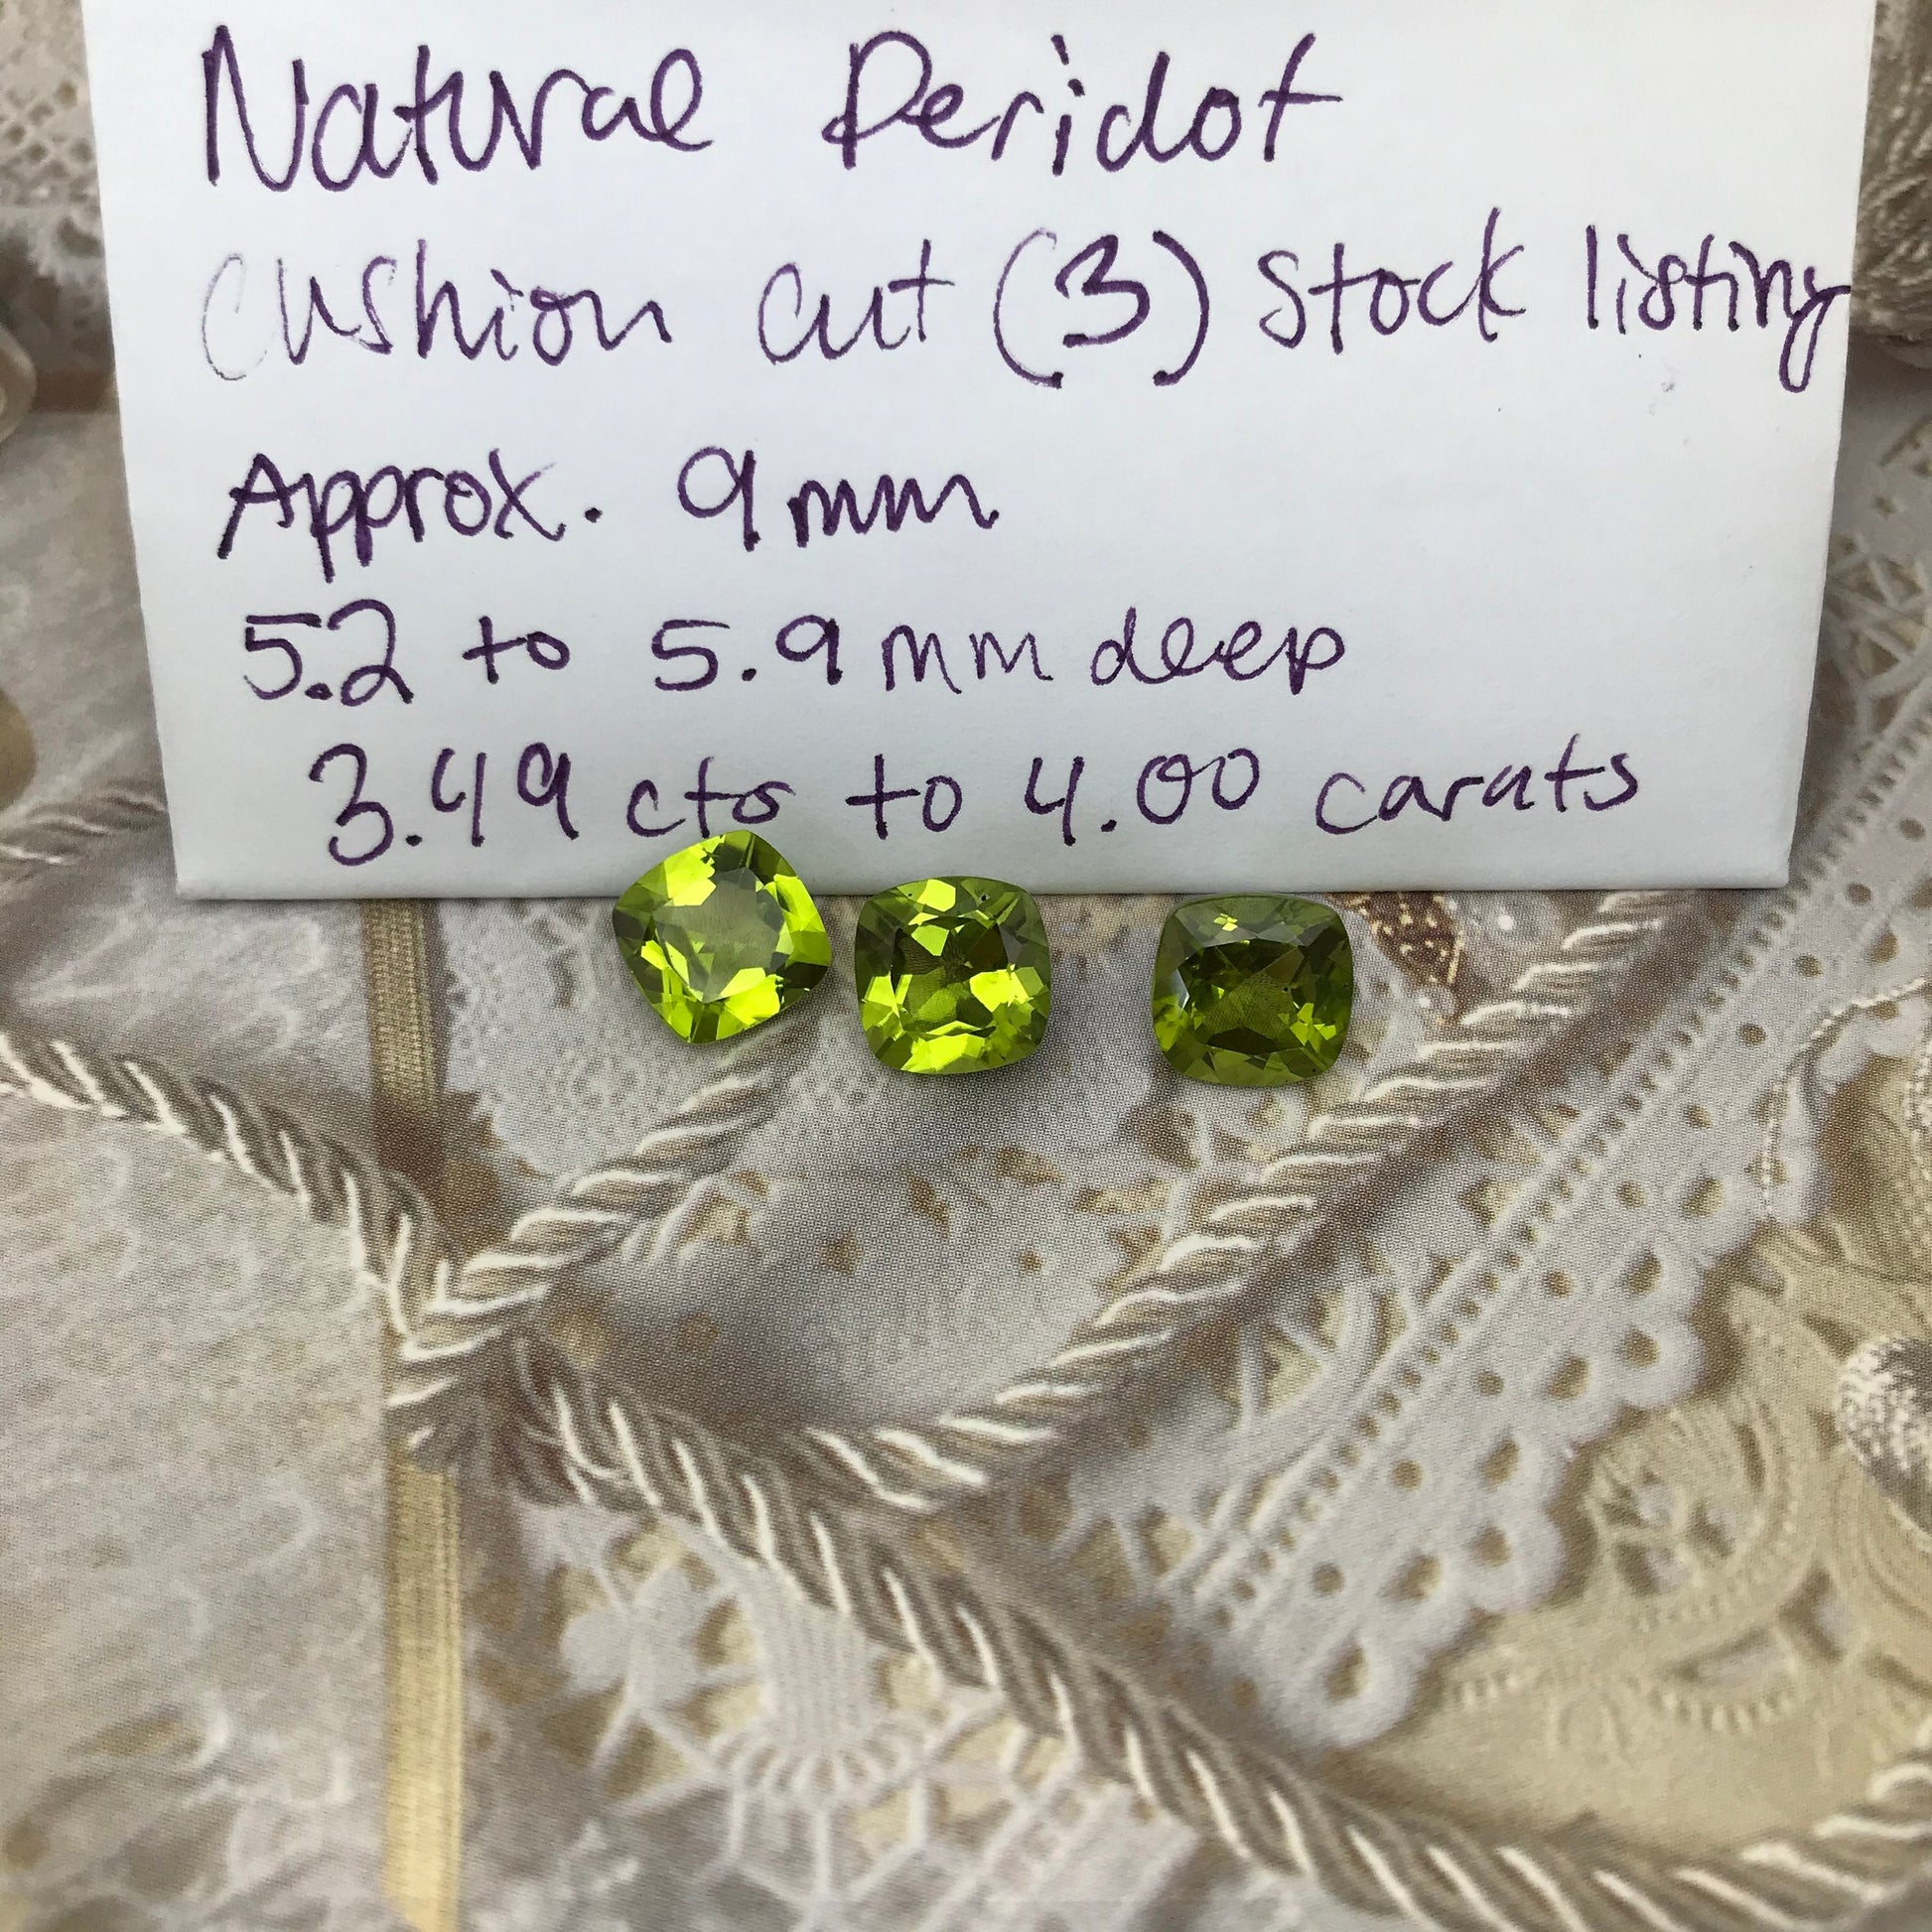 Natural Peridot
cushion cut (3) stock listing
Approx. 9mm
5.2 to 5.9mm deep
3.49 cts to 4.00 carats